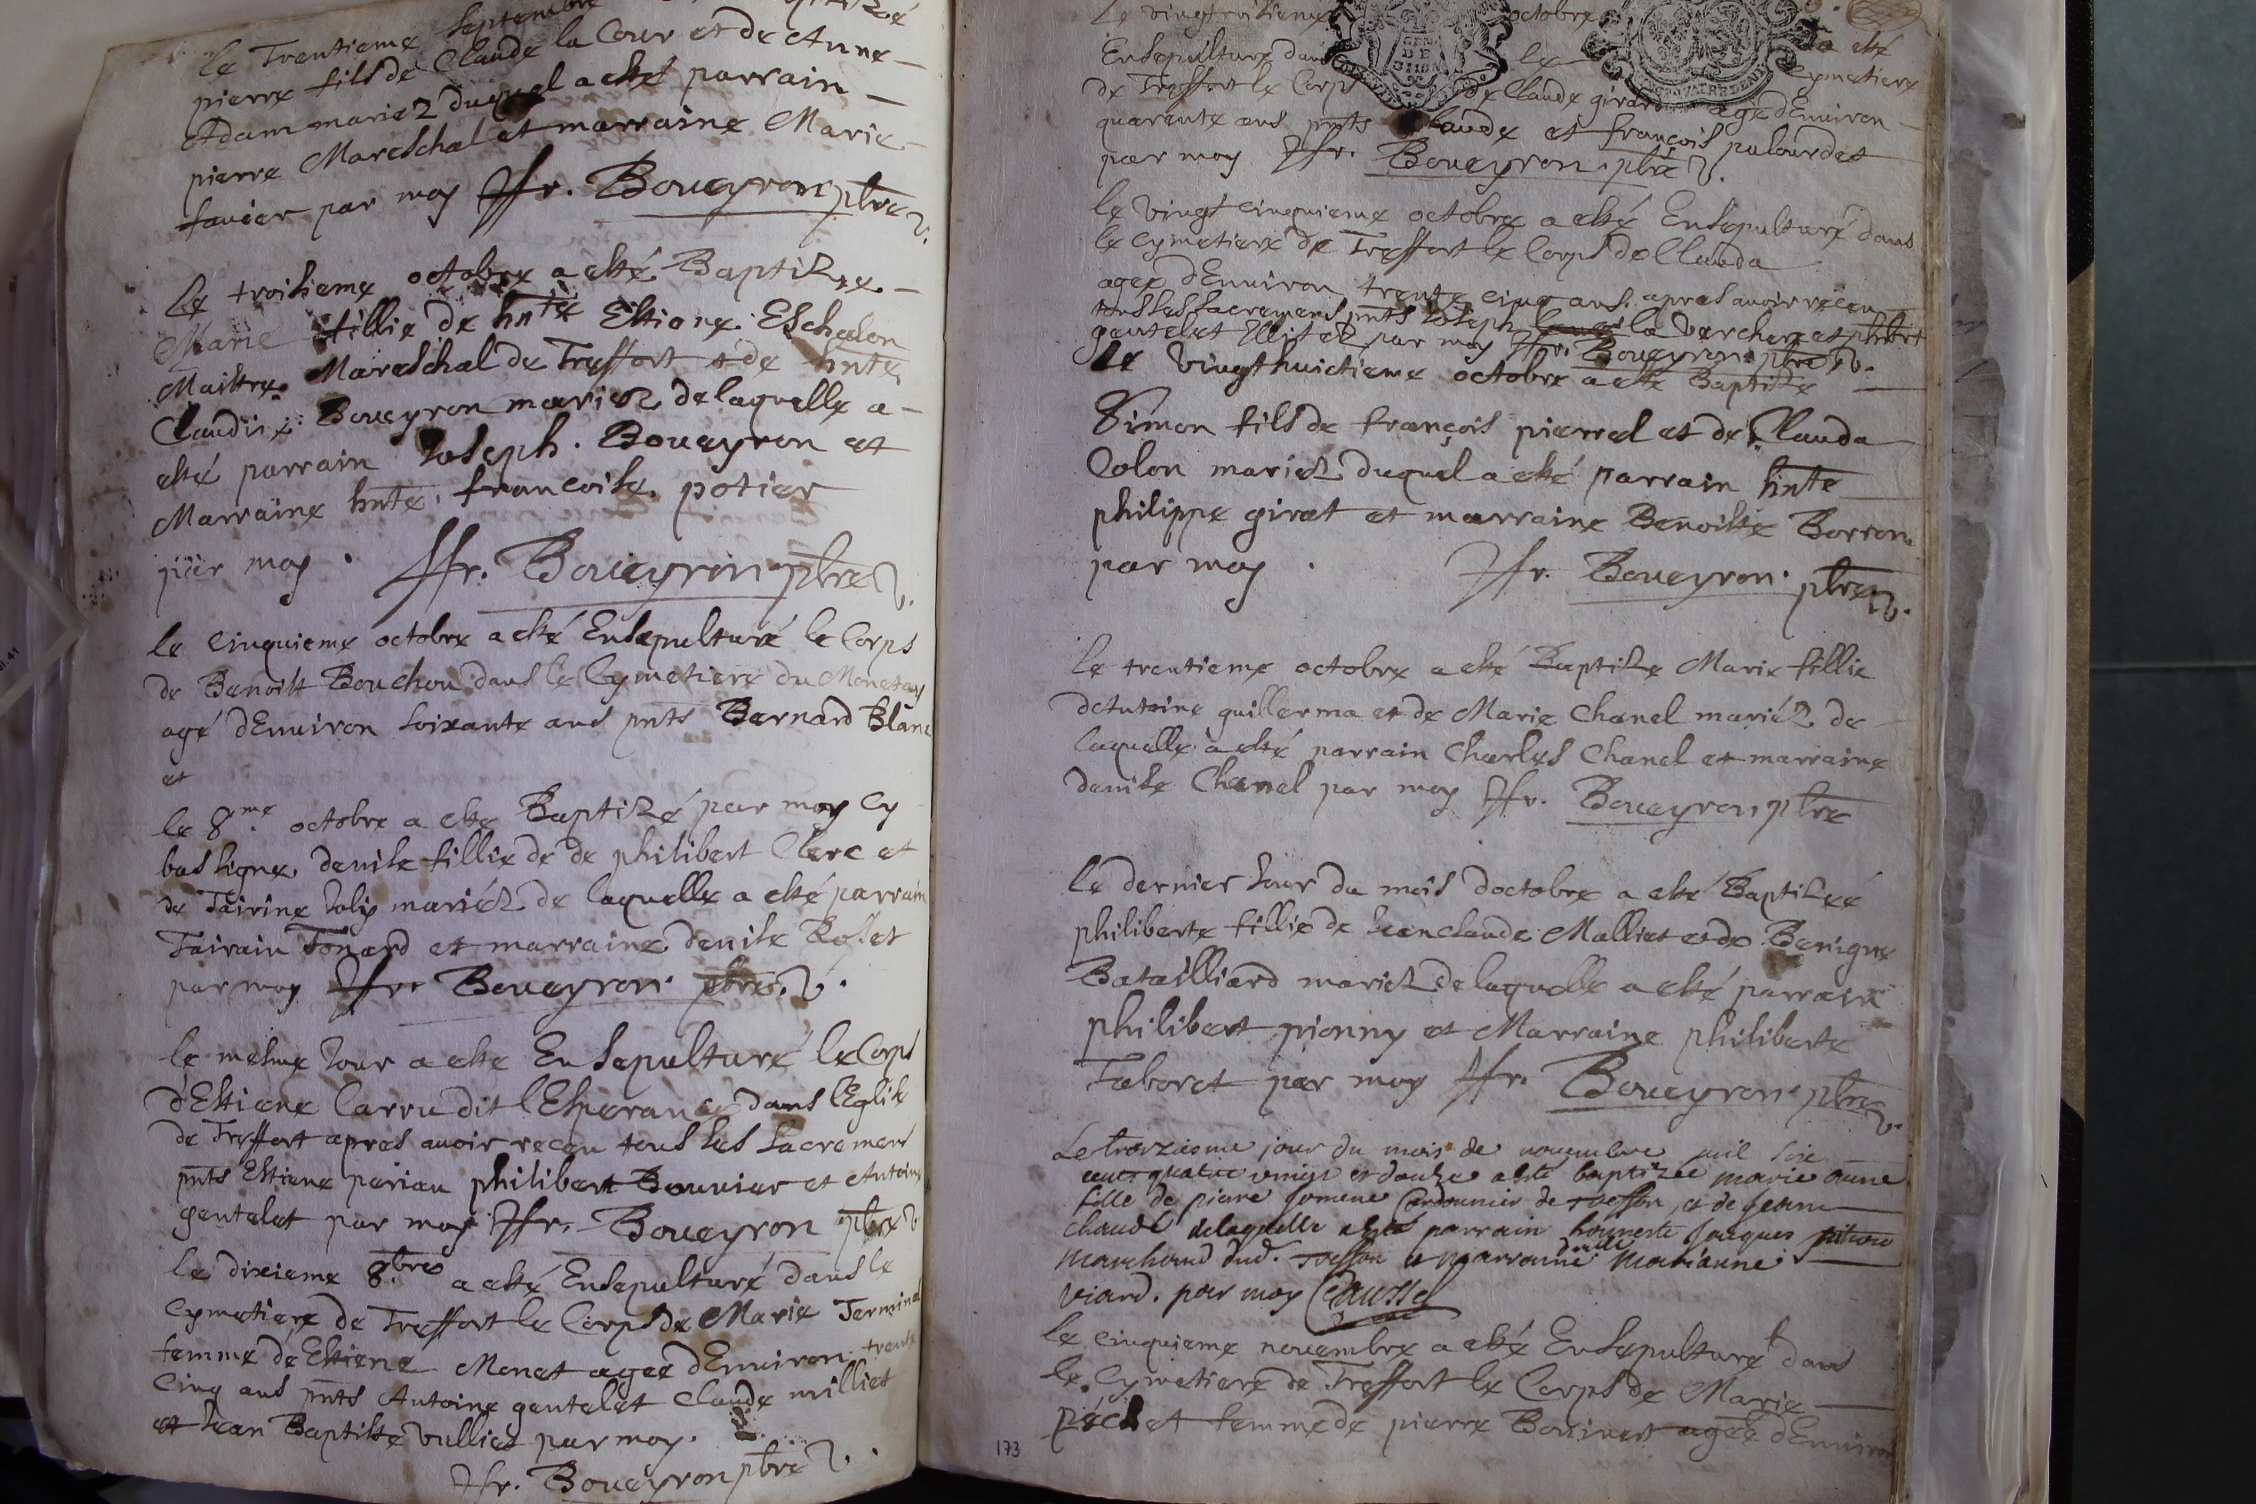 le Trentieme Septembre
pierre fils de Claude la Cour et de Anne
Adam mariez duquel a esté parrain
pierre Mareschal et marraine Marie
favier par moy ffr. Boueyron ptre
Le troisieme octobre a esté Baptizee
Marie fillie de hnte Estiene Eschalon
Maistre Mareschal de Treffort et de hnte
Claudine Boueyron mariez de laquelle a
esté parrain Joseph Boueyron et
Marraine hnte francoise potier
par moy ffr. Boueyron ptre
le cinquieme octobre a esté Ensepulturé le Corps
de Benoist Bouchou dans le Cymetiere du
agé dEnuiron soixante ans pnts Bernard Blanc
et
le 8me octobre a este Baptizé par moy Cy
bas signe denise fillie de de philibert Clerc et
de Tairine Joly mariéz de laquelle a esté parrain
Tairain Tonard et marraine denise Rosset
par moy ffr. Boueyron ptre
le mesme Jour a este Ensepulturé le Corps
d'Estiene Carru dit lEsperance dans lEglise
de Treffort apres auoir receu tous ses sacremens
pnts Estiene periau philibert Bouuier et Antoine
gentelet par moy ffr. Boueyron ptre
le dixieme 8bre a esté Ensepulturé dans le
Cymetiere de Treffort le Corps de Marie
femme de Estiene Monet agee dEnuiron trente
cinq ans pnts Antoine gentelet Claude milliet
et Jean Baptiste vulliet par moy.
ffr. Boueyron ptre
Le octobre
Ensepulturé dans le a esté
Cymetiere
de Treffort le Corps de Claude girard agé dEnuiron
quarente ans pnts Claude et françois palourdet
par moy ffr. Boueyron ptre
le vingt cinquieme octobre a esté Ensepulturé dans
le Cymetiere de Treffort le Corps de Clauda
agee dEnuiron trente cinq ans apres auoir receu
tous ses sacremens pnts Joseph la verchere et phbert
gentelet par moy ffr. Boueyron ptre
le vingthuictieme octobre a esté Baptisé
Simon fils de françois pierrel et de Clauda
Colon mariez duquel a esté parrain hnte
philippe girat et marraine Benoiste Borron
par moy ffr. Boueyron ptre
le trentieme octobre a esté Baptize Marie fillie
dAntoine guillerma et de Marie Chanel mariéz de
laquelle a esté parrain Charles Chanel et marraine
denise Chanel par moy ffr. Boueyron ptre
le dernier Jour du mois doctobre a esté Baptizeé
philiberte fillie de Jean claude Malliet et de Benigne
Batailliard mariez de laquelle a esté parrain
philibert pionny et Marraine philiberte
Taboret par moy ffr. Boueyron ptre
Le trezieme jour du mois de nouembre mil six
cens quatre vingt et douze a esté baptizee marie anne
fille de piere Cordounier de treffort, et de Jeanne
chaude delaquelle a esté parrain honneste Jacques
marchand dud. treffort et marraine dlle marianne
viard. par moy
le cinquieme nouembre a esté Ensepulturé dans
le Cymetiere de Treffort le Corps de Marie
péchet femme de pierre agée dEnuiron
173